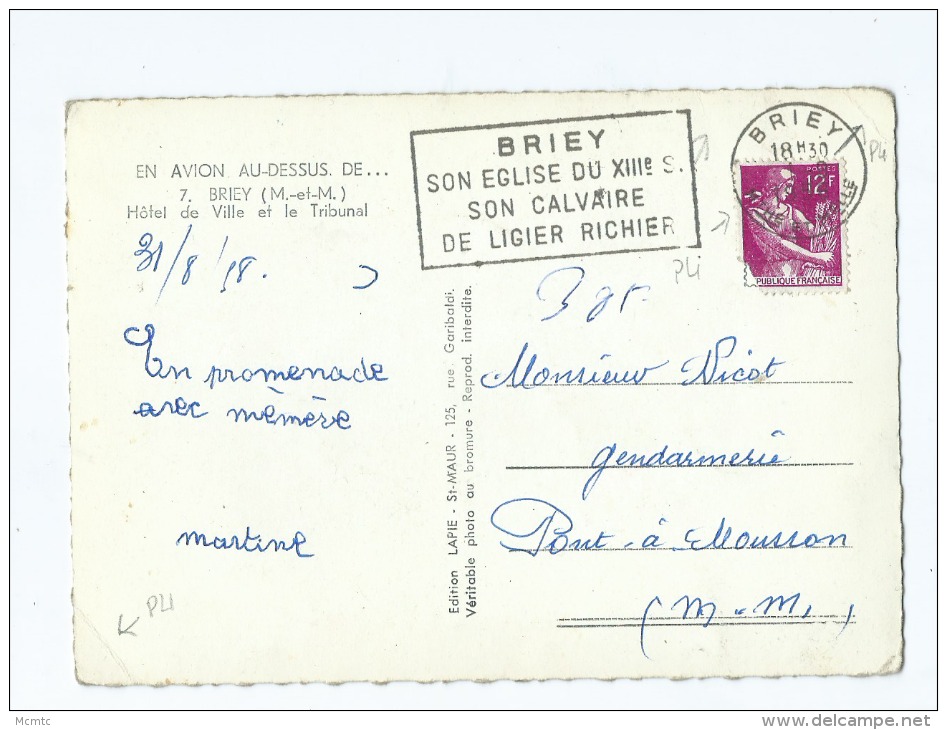 EN AVION AU-DESSUS DE...
7. BRIEY (M.-et-M.)
Hôtel de Ville et le Tribunal
31/8/58.
En promenade
avec mémère
martine
PLI
BRIEY
SON EGLISE DU XIIIe S.
SON CALVAIRE
DE LIGIER RICHIER
PLI
BRIEY
18H30
PLI
POSTES
12F
PUBLIQUE FRANÇAISE
Edition LAPIE - St-MAUR - 125, rue Garibaldi.
Véritable photo au bromure - Reprod. interdite.
Monsieur Nicot
gendarmerie
Pont-à-Mousson
(M-M.)
Mcmtc
delcampe.net